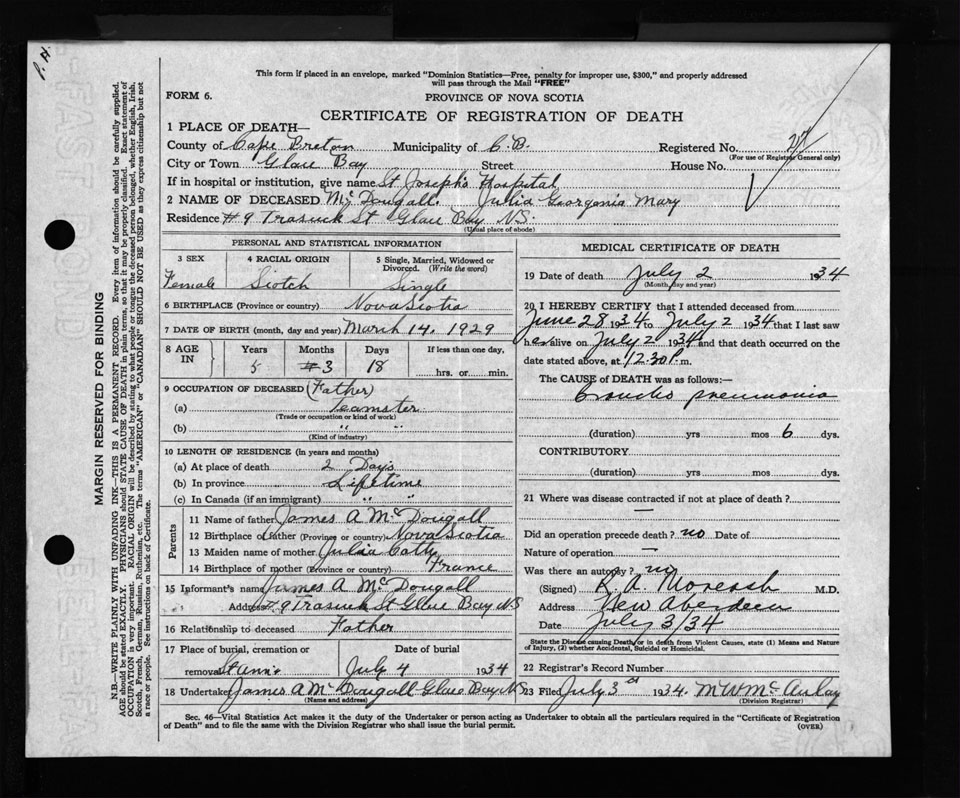 P. H.
This form if placed in an envelope, marked "Dominion Statistics—Free, penalty for improper use, $300," and properly addressed
will pass through the Mail "FREE"
FORM 6.
PROVINCE OF NOVA SCOTIA
CERTIFICATE OF REGISTRATION OF DEATH
1 PLACE OF DEATH—
County of Cape Breton Municipality of C.B. Registered No.
(For use of Registrar General only)
City or Town Glace Bay Street House No.
If in hospital or institution, give name St Joseph's Hospital
2 NAME OF DECEASED McDougall. Julia Georgenia Mary
Residence #9 St Glace Bay N.S.
(Usual place of abode)
PERSONAL AND STATISTICAL INFORMATION
3 SEX 4 RACIAL ORIGIN 5 Single, Married, Widowed or Divorced. (Write the word)
Female Scotch Single
6 BIRTHPLACE (Province or country) Nova Scotia
7 DATE OF BIRTH (month, day and year) March 14. 1929
8 AGE IN Years Months Days If less than one day,
5 #3 18 hrs. or min.
9 OCCUPATION OF DECEASED (Father)
(a) Teamster
(Trade or occupation or kind of work)
(b) " "
(Kind of industry)
10 LENGTH OF RESIDENCE (in years and months)
(a) At place of death 2 Days
(b) In province Lifetime
(c) In Canada (if an immigrant) " "
Parents
11 Name of father James A McDougall
12 Birthplace of father (Province or country) Nova Scotia
13 Maiden name of mother Julia
14 Birthplace of mother (Province or country) France
15 Informant's name James A McDougall
Address #9 St Glace Bay NS
16 Relationship to deceased Father
17 Place of burial, cremation or removal Date of burial
St Ann's July 4 1934
18 Undertaker James A McDougall Glace Bay NS
(Name and address)
MEDICAL CERTIFICATE OF DEATH
19 Date of death July 2 1934
(Month, day and year)
20 I HEREBY CERTIFY that I attended deceased from
June 28 1934 to July 2 1934 that I last saw
her alive on July 2 1934 and that death occurred on the
date stated above, at 12.30 P. m.
The CAUSE of DEATH was as follows:—
Broncho pneumonia
(duration) yrs mos 6 dys.
CONTRIBUTORY
(duration) yrs mos dys.
21 Where was disease contracted if not at place of death?
—
Did an operation precede death? no Date of
Nature of operation —
Was there an autopsy? no
(Signed) R. A. M.D.
Address New Aberdeen
Date July 3/34
State the Disease causing Death, or in death from Violent Causes, state (1) Means and Nature
of Injury, (2) whether Accidental, Suicidal or Homicidal.
22 Registrar's Record Number
23 Filed July 3rd 1934. M W McAulay
(Division Registrar)
Sec. 46—Vital Statistics Act makes it the duty of the Undertaker or person acting as Undertaker to obtain all the particulars required in the "Certificate of Registration
of Death" and to file the same with the Division Registrar who shall issue the burial permit.
(OVER)
MARGIN RESERVED FOR BINDING
N.B.—WRITE PLAINLY WITH UNFADING INK—THIS IS A PERMANENT RECORD. Every item of information should be carefully supplied.
AGE should be stated EXACTLY. PHYSICIANS should STATE CAUSE OF DEATH in plain terms, so that it may be properly classified. Exact statement of
OCCUPATION is very important. RACIAL ORIGIN will be described by stating to what people or tongue the deceased person belonged, whether English, Irish,
Scotch, French, German, Russian, Ruthenian, etc. The terms "AMERICAN" or "CANADIAN" SHOULD NOT BE USED as they express citizenship but not
a race or people. See instructions on back of Certificate.